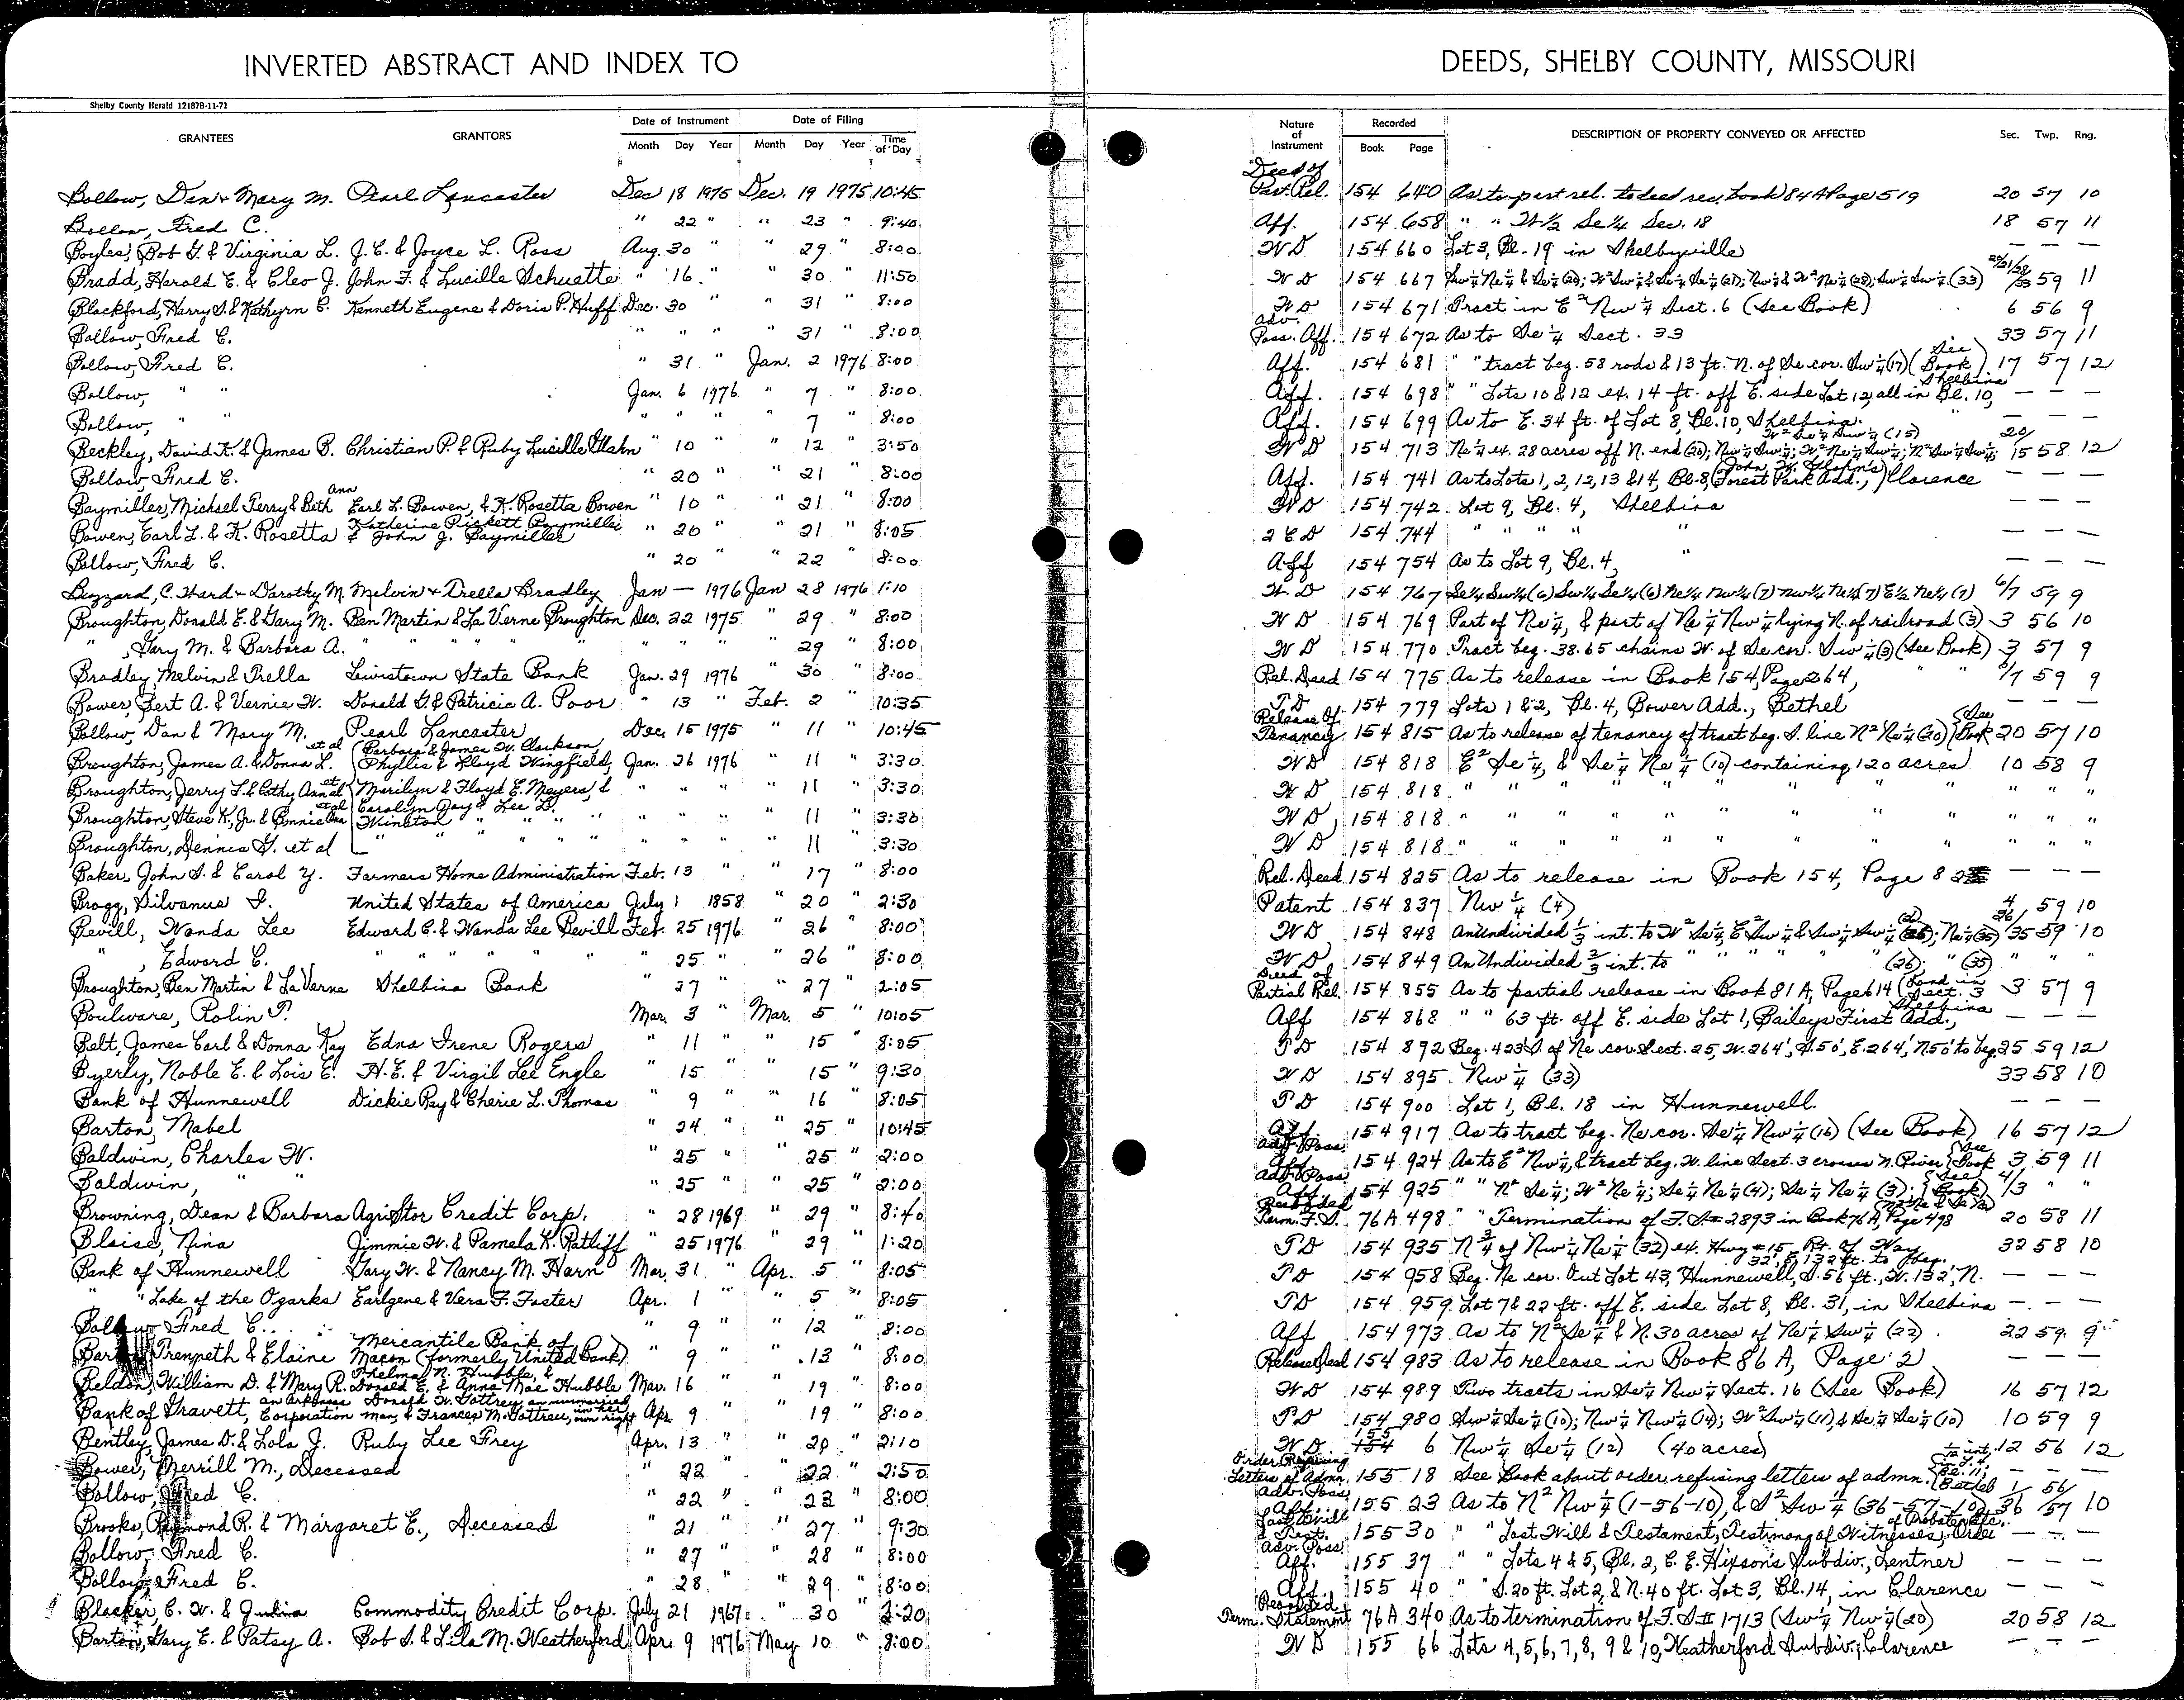 INVERTED ABSTRACT AND INDEX TO DEEDS, SHELBY COUNTY, MISSOURI
Shelby County Herald 121878-11-71
GRANTEES GRANTORS Date of Instrument Date of Filing Time of Day Nature of Instrument Recorded DESCRIPTION OF PROPERTY CONVEYED OR AFFECTED Sec. Twp. Rng.
Month Day Year Month Day Year Book Page
Bollow, Dan + Mary M. Pearl Lancaster Dec 18 1975 Dec. 19 1975 10:45 Deed of Part. Rel. 154 640 As to part rel. to deed rec. book 84A Page 519 20 57 10
Bollow, Fred C. " 22 " " 23 " 9:40 Aff. 154 658 " " W 1/2 Se 1/4 Sec. 18 18 57 11
Boyles, Bob G. & Virginia L. J.C. & Joyce L. Ross Aug. 30 " " 29 " 8:00 WD 154 660 Lot 3, Bl. 19 in Shelbyville — —
Bradd, Harold E. & Cleo J. John F. & Lucille Schuette " 16 " " 30 " 11:50 WD 154 667 (33) 59 11
Blackford, Harry S. & Kathyrn C. Kenneth Eugene & Doris P. Huff Dec. 30 " " 31 " 8:00 WD 154 671 Tract in E² Nw 1/4 Sect. 6 (See Book) 6 56 9
Bollow, Fred C. " " " 31 " 8:00 Adv. Poss. Aff. 154 672 As to Se 1/4 Sect. 33 33 57 11
Bollow, Fred C. " 31 " Jan. 2 1976 8:00 Aff. 154 681 " " tract beg. 58 rods & 13 ft. N. of Se cor. Sw 1/4 (17) (See Book) 17 57 12
Bollow, " " Jan. 6 1976 " 7 " 8:00 Aff. 154 698 " " Lots 10 & 12 ex. 14 ft. off E. side Lot 12, all in Bl. 10, Shelbina — — —
Bollow, " " " " " " 7 " 8:00 Aff. 154 699 As to E. 34 ft. of Lot 8, Bl. 10, Shelbina. — — —
Beckley, David K. & James B. Christian P. & Ruby Lucille Glahn " 10 " " 12 " 3:50 WD 154 713 Ne 1/4 ex. 28 acres off N. end (20); Nw 1/4 Sw 1/4; W² Ne 1/4 Sw 1/4; N² Sw 1/4 Sw 1/4; W² Se 1/4 Sw 1/4 (15) 20/15 58 12
Bollow, Fred C. " 20 " " 21 " 8:00 Aff. 154 741 As to Lots 1, 2, 12, 13 & 14, Bl. 8, (John W. Glahn's Forest Park Add.,) Clarence — — —
Baymiller, Michael Terry & Beth Ann Earl L. Bowen, & K. Rosetta Bowen " 10 " " 21 " 8:00 WD 154 742 Lot 9, Bl. 4, Shelbina — — —
Bowen, Earl L. & K. Rosetta Katherine Pickett Baymiller & John J. Baymiller " 20 " " 21 " 8:05 2CD 154 744 " " " " " — — —
Bollow, Fred C. " 20 " " 22 " 8:00 Aff 154 754 As to Lot 9, Bl. 4, " — — —
Buzzard, C. Ward + Dorothy M. Melvin + Trella Bradley Jan — 1976 Jan 28 1976 1:10 W D 154 767 Se¼ Sw¼ (6) Sw¼ Se¼ (6) Ne¼ Nw¼ (7) Nw¼ Ne¼ (7) E½ Ne¼ (7) 6/7 59 9
Broughton, Donald E. & Gary M. Ben Martin & La Verne Broughton Dec. 22 1975 " 29 " 8:00 WD 154 769 Part of Ne 1/4, & part of Ne 1/4 Nw 1/4 lying N. of railroad (3) 3 56 10
" , Gary M. & Barbara A. " " " " " " " " 29 " 8:00 WD 154 770 Tract beg. 38.65 chains W. of Se cor. Sw 1/4 (3) (See Book) 3 57 9
Bradley Melvin & Trella Lewistown State Bank Jan. 29 1976 " 30 " 8:00 Rel. Deed 154 775 As to release in Book 154, Page 264, " " 6/7 59 9
Bower, Bert A. & Vernie W. Donald G. & Patricia A. Poor " 13 " Feb. 2 " 10:35 TD 154 779 Lots 1 & 2, Bl. 4, Bower Add., Bethel — — —
Bollow, Dan & Mary M. Pearl Lancaster Dec. 15 1975 " 11 " 10:45 Release of Tenancy 154 815 As to release of tenancy of tract beg. S. line N² Ne 1/4 (20) (See Book 20 57 10
Broughton, James A. & Donna L. et al (Barbara & James W. Clarkson, Phyllis & Lloyd Wingfield, Jan. 26 1976 " 11 " 3:30 WD 154 818 E² Se 1/4, & Se 1/4 Ne 1/4 (10) containing 120 acres 10 58 9
Broughton, Jerry L. & Cathy Ann et al Marilyn & Floyd E. Meyers, & " " " " 11 " 3:30 WD 154 818 " " " " " " "
Broughton, Steve K., Jr. & Connie Ann et al Carolyn Gay & Lee D. Winston " " " " " 11 " 3:30 WD 154 818 " " " " " " "
Broughton, Dennis G. et al " " " " " " 11 3:30 WD 154 818 " " " " " " "
Baker, John S. & Carol Y. Farmers Home Administration Feb. 13 " " 17 " 8:00 Rel. Deed 154 825 As to release in Book 154, Page 82 — — —
Bragg, Silvanus I. United States of America July 1 1858 " 20 " 2:30 Patent 154 837 Nw 1/4 (4) 4 59 10
Bevill, Wanda Lee Edward C. & Wanda Lee Bevill Feb. 25 1976 " 26 " 8:00 WD 154 848 An Undivided 1/3 int. to W² Se 1/4, E² Sw 1/4 & Sw 1/4 Sw 1/4 (26); Ne 1/4 (35) 26/35 59 10
" , Edward C. " " " " " " 25 " " 26 " 8:00 WD 154 849 An Undivided 2/3 int. to " " " " " (26); " (35) " " "
Broughton, Ben Martin & La Verne Shelbina Bank " 27 " " 27 " 2:05 Deed of Partial Rel. 154 855 As to partial release in Book 81A, Page 614 (Land in Sect. 3 3 57 9
Boulware, Rolin T. Mar. 3 " Mar. 5 " 10:05 Aff 154 868 " " 63 ft. off E. side Lot 1, Baileys First Add., Shelbina — — —
Belt, James Carl & Donna Kay Edna Irene Rogers " 11 " " 15 " 8:05 TD 154 892 Beg. 423' S. of Ne cor. Sect. 25, W. 264', S. 50', E. 264', N. 50' to beg. 25 59 12
Byerly, Noble E. & Lois E. H.E. & Virgil Lee Engle " 15 " " 15 " 9:30 WD 154 895 Nw 1/4 (33) 33 58 10
Bank of Hunnewell Dickie Ray & Cherie L. Thomas " 9 " " 16 8:05 TD 154 900 Lot 1, Bl. 18 in Hunnewell. — — —
Barton, Mabel " 24 " " 25 " 10:45 Aff. 154 917 As to tract beg. Ne cor. Se 1/4 Nw 1/4 (16) (See Book) 16 57 12
Baldwin, Charles W. " 25 " " 25 " 2:00 Adv. Poss Aff. 154 924 As to E² Nw 1/4, & tract beg. W. line Sect. 3 crosses N. River (See Book 3 59 11
Baldwin, " " " 25 " " 25 " 2:00 Adv. Poss Aff. 154 925 " " N² Se 1/4; W² Ne 1/4; Se 1/4 Ne 1/4 (4); Se 1/4 Ne 1/4 (3); (See Book) 4/3 " "
Browning, Dean & Barbara AgriStor Credit Corp. " 28 1969 " 29 " 8:40 Recorded Term. F.S. 76A 498 " " Termination of F.S.# 2893 in Book 76A, Page 498 20 58 11
Blaise, Nina Jimmie W. & Pamela K. Ratliff " 25 1976 " 29 " 1:20 TD 154 935 N 3/4 of Nw 1/4 Ne 1/4 (32) ex. Hwy #15 Rt. of Way 32 58 10
Bank of Hunnewell Gary W. & Nancy M. Harn Mar. 31 " Apr. 5 " 8:05 TD 154 958 Beg. Ne cor. Out Lot 43, Hunnewell, S. 56 ft., W. 132', N. 32', E. 132 ft. to beg. — — —
" " Lake of the Ozarks Earlgene & Vera F. Foster Apr. 1 " " 5 " 8:05 TD 154 959 Lot 7 & 22 ft. off E. side Lot 8, Bl. 31, in Shelbina — — —
Bollow Fred C. " 9 " " 12 " 8:00 Aff 154 973 As to N² Se 1/4 & N. 30 acres of Ne 1/4 Sw 1/4 (22) 22 59 9
Trenpeth & Elaine Mercantile Bank of Macon (formerly United Bank) " 9 " " 13 " 8:00 Release Deed 154 983 As to release in Book 86A, Page 2 — — —
Beldon, William D. & Mary R. Thelma N. Hubble, & Donald E. & Anna Mae Hubble Mar. 16 " " 19 " 8:00 WD 154 989 Two tracts in Se 1/4 Nw 1/4 Sect. 16 (See Book) 16 57 12
Bank of Gravett, an Arkansas Corporation Donald W. Gottrey an unmarried man, & Frances M. Gottreu, in her own right Apr. 9 " " 19 " 8:00 TD 154 980 Sw 1/4 Se 1/4 (10); Nw 1/4 Nw 1/4 (14); W² Sw 1/4 (11), & Se 1/4 Se 1/4 (10) 10 59 9
Bentley, James D. & Lola J. Ruby Lee Frey Apr. 13 " " 20 " 2:10 WD 155 6 Nw 1/4 Se 1/4 (12) (40 acres) 12 56 12
Bower, Merrill M., Deceased " 22 " 22 " 2:50 Order Refusing Letters of Admn. 155 18 See Book about order refusing letters of admn. Bethel — — —
Bollow, Fred C. " 22 " " 23 " 8:00 Adv. Poss Aff. 155 23 As to N² Nw 1/4 (1-56-10), & S² Sw 1/4 (36-57-10) 1/36 56/57 10
Brooks, Raymond R. & Margaret E., Deceased " 21 " " 27 " 9:30 Last Will & Test. 155 30 " " Last Will & Testament, Testimony of Witnesses, Order of Probate, Etc. — — —
Bollow, Fred C. " 27 " " 28 " 8:00 Adv. Poss. Aff. 155 37 " " Lots 4 & 5, Bl. 2, C.E. Hixson's Subdiv., Lentner — — —
Bollow, Fred C. " 28 " " 29 " 8:00 Aff. 155 40 " " S. 20 ft. Lot 2, & N. 40 ft. Lot 3, Bl. 14, in Clarence — — —
Blacker, C. W. & Julina Commodity Credit Corp. July 21 1967 " 30 " 2:20 Recorded Term. Statement 76A 340 As to termination of F.S.# 1713 (Sw 1/4 Nw 1/4 (20) 20 58 12
Barton, Gary E. & Patsy A. Bob S. & Lila M. Weatherford Apr. 9 1976 May 10 " 8:00 WD 155 66 Lots 4, 5, 6, 7, 8, 9 & 10, Weatherford Subdiv., Clarence — — —